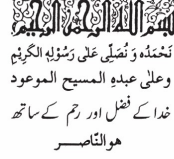 بسم الله الرحمن الرحيم
نَحْمَدُهٗ وَ نُصَلِّى عَلٰى رَسُوْلِهِ الْكَرِيْمِ
وعلىٰ عبدهِ المسيح الموعود
خدا کے فضل اور رحم کے ساتھ
هو النّاصر